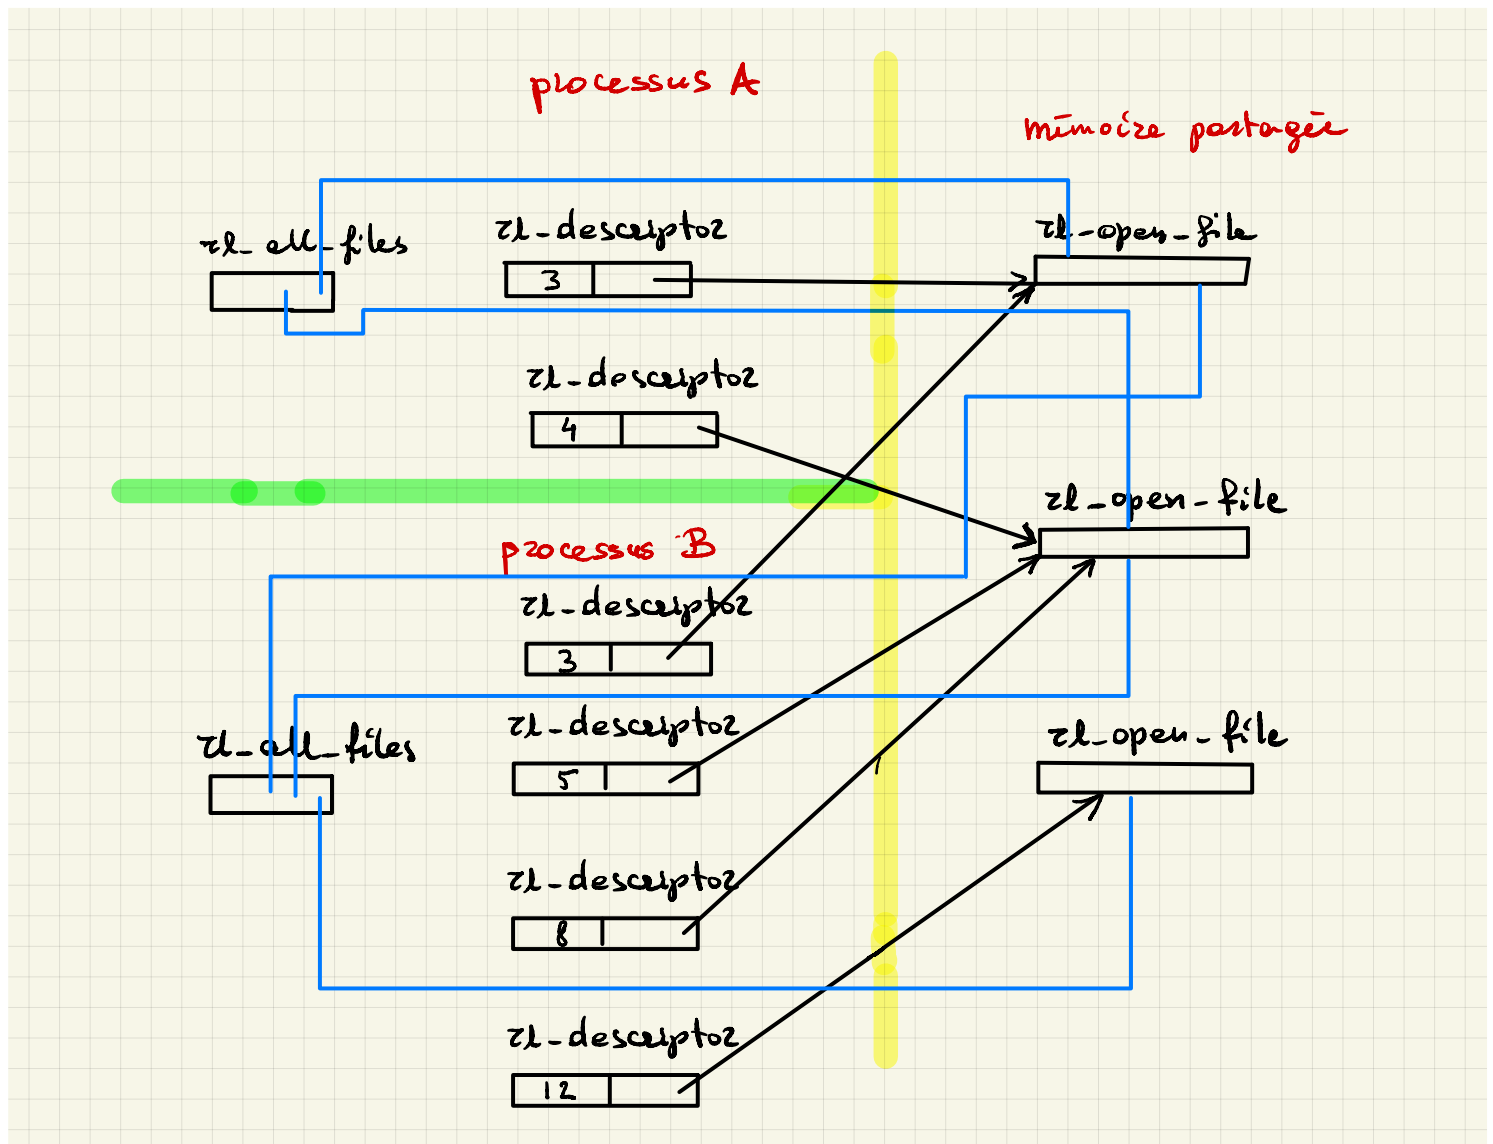 processus A
mémoire partagée
rl_all_files
rl_descriptor
rl_open_file
3
rl_descriptor
4
rl_open_file
processus B
rl_descriptor
3
rl_all_files
rl_descriptor
rl_open_file
5
rl_descriptor
8
rl_descriptor
12